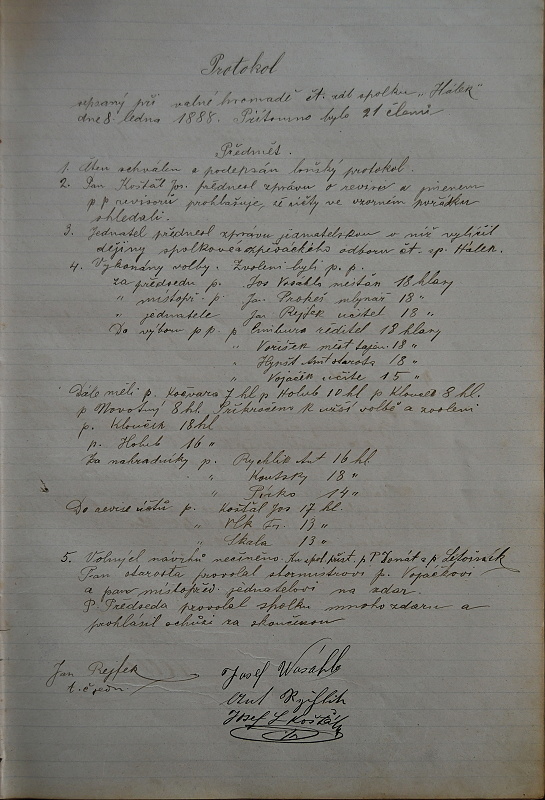 Protokol
sepsaný při valné hromadě čt. záb spolku „Hálek"
dne 8. ledna 1888. Přítomno bylo 21 členů
Předmět.
1. Čten schválen a podepsán loňský protokol.
2. Pan Košťál Jos. přednesl zprávu o revisi a jménem
p p revisorů prohlašuje, že účty ve vzorném pořádku
shledali.
3. Jednatel přednesl zprávu jednatelskou v níž vylíčil
dějiny spolkové a pěváckého odboru čt. sp. Hálek.
4. Vykonány volby. Zvoleni byli p. p.
za předsedu p. Jos Vosáhlo měšťan 18 hlasy
„ místopř. p. Jan Prokeš mlynář 18 „
„ jednatele Jan Rejfek učitel 18 „
Do výboru p p. p ředitel 18 hlasy
„ Voříšek měst tajem. 18 „
„ Hynšt Ant starosta 18 „
„ Vojáček učite 15 „
Dále měli p. Košvara 7 hl p Holub 10 hl p Klouček 8 hl.
p Novotný 8 hl. Přikročeno k užší volbě a zvoleni
p. Klouček 18 hl
p. Holub 16 „
Za náhradníky p. Rychlík Ant 16 hl.
„ Koutský 18 „
„ Pirko 14 „
Do revise účtů p. Košťál Jos 17 hl.
„ Vlk Fr. 13 „
„ Skála 13 „
5. Volných návrhů nečiněno. p
Pan starosta provolal sbormistrovi p. Vojáčkovi
a pan místopřed. jednatelovi na zdar.
P. Předseda provolal spolku mnoho zdaru a
prohlásil schůzi za skončenou
Jan Rejfek
t. č. jedn.
Josef Wosáhlo
Ant Rychlík
Josef L Košťál